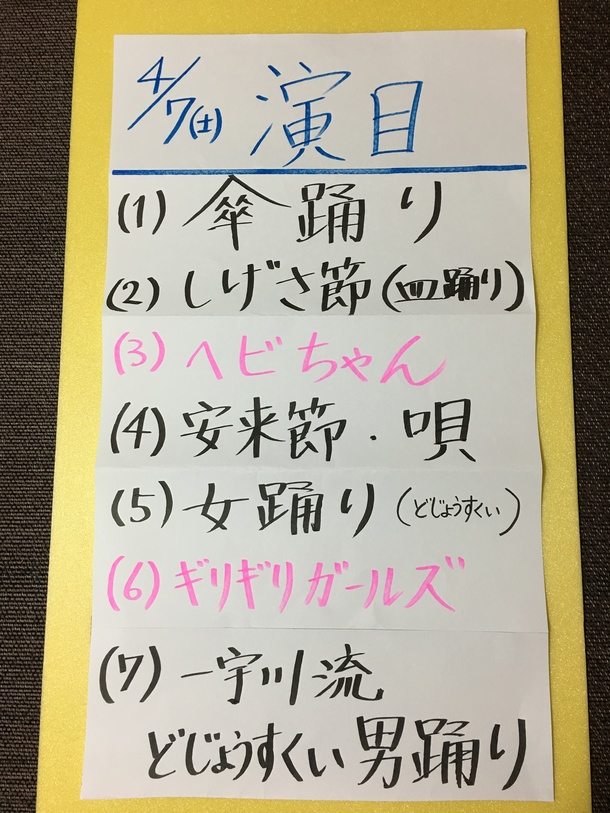 4/7(土) 演目
(1) 傘踊り
(2) しげさ節(皿踊り)
(3) ヘビちゃん
(4) 安来節・唄
(5) 女踊り(どじょうすくい)
(6) ギリギリガールズ
(7) 一宇川流
どじょうすくい男踊り